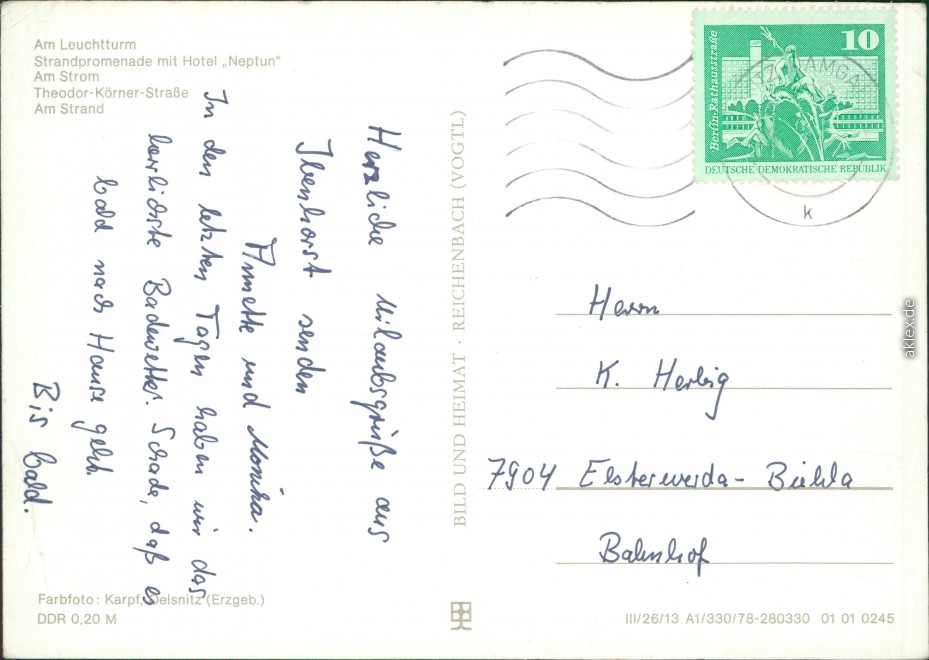 Am Leuchtturm
Strandpromenade mit Hotel „Neptun“
Am Strom
Theodor-Körner-Straße
Am Strand
Herzliche Urlaubsgrüße aus
Ibenhorst senden
Annette und Monika.
In den letzten Tagen haben wir das
herrlichste Badewetter. Schade, daß es
bald nach Hause geht.
Bis bald.
Farbfoto: Karpf, Oelsnitz (Erzgeb.)
DDR 0,20 M
BILD UND HEIMAT · REICHENBACH (VOGTL)
10
Berlin-Rathausstraße
DEUTSCHE DEMOKRATISCHE REPUBLIK
k
Herrn
K. Herbig
7904 Elsterwerda-Biehla
Bahnhof
III/26/13 A1/330/78-280330 01 01 0245
aklex.de